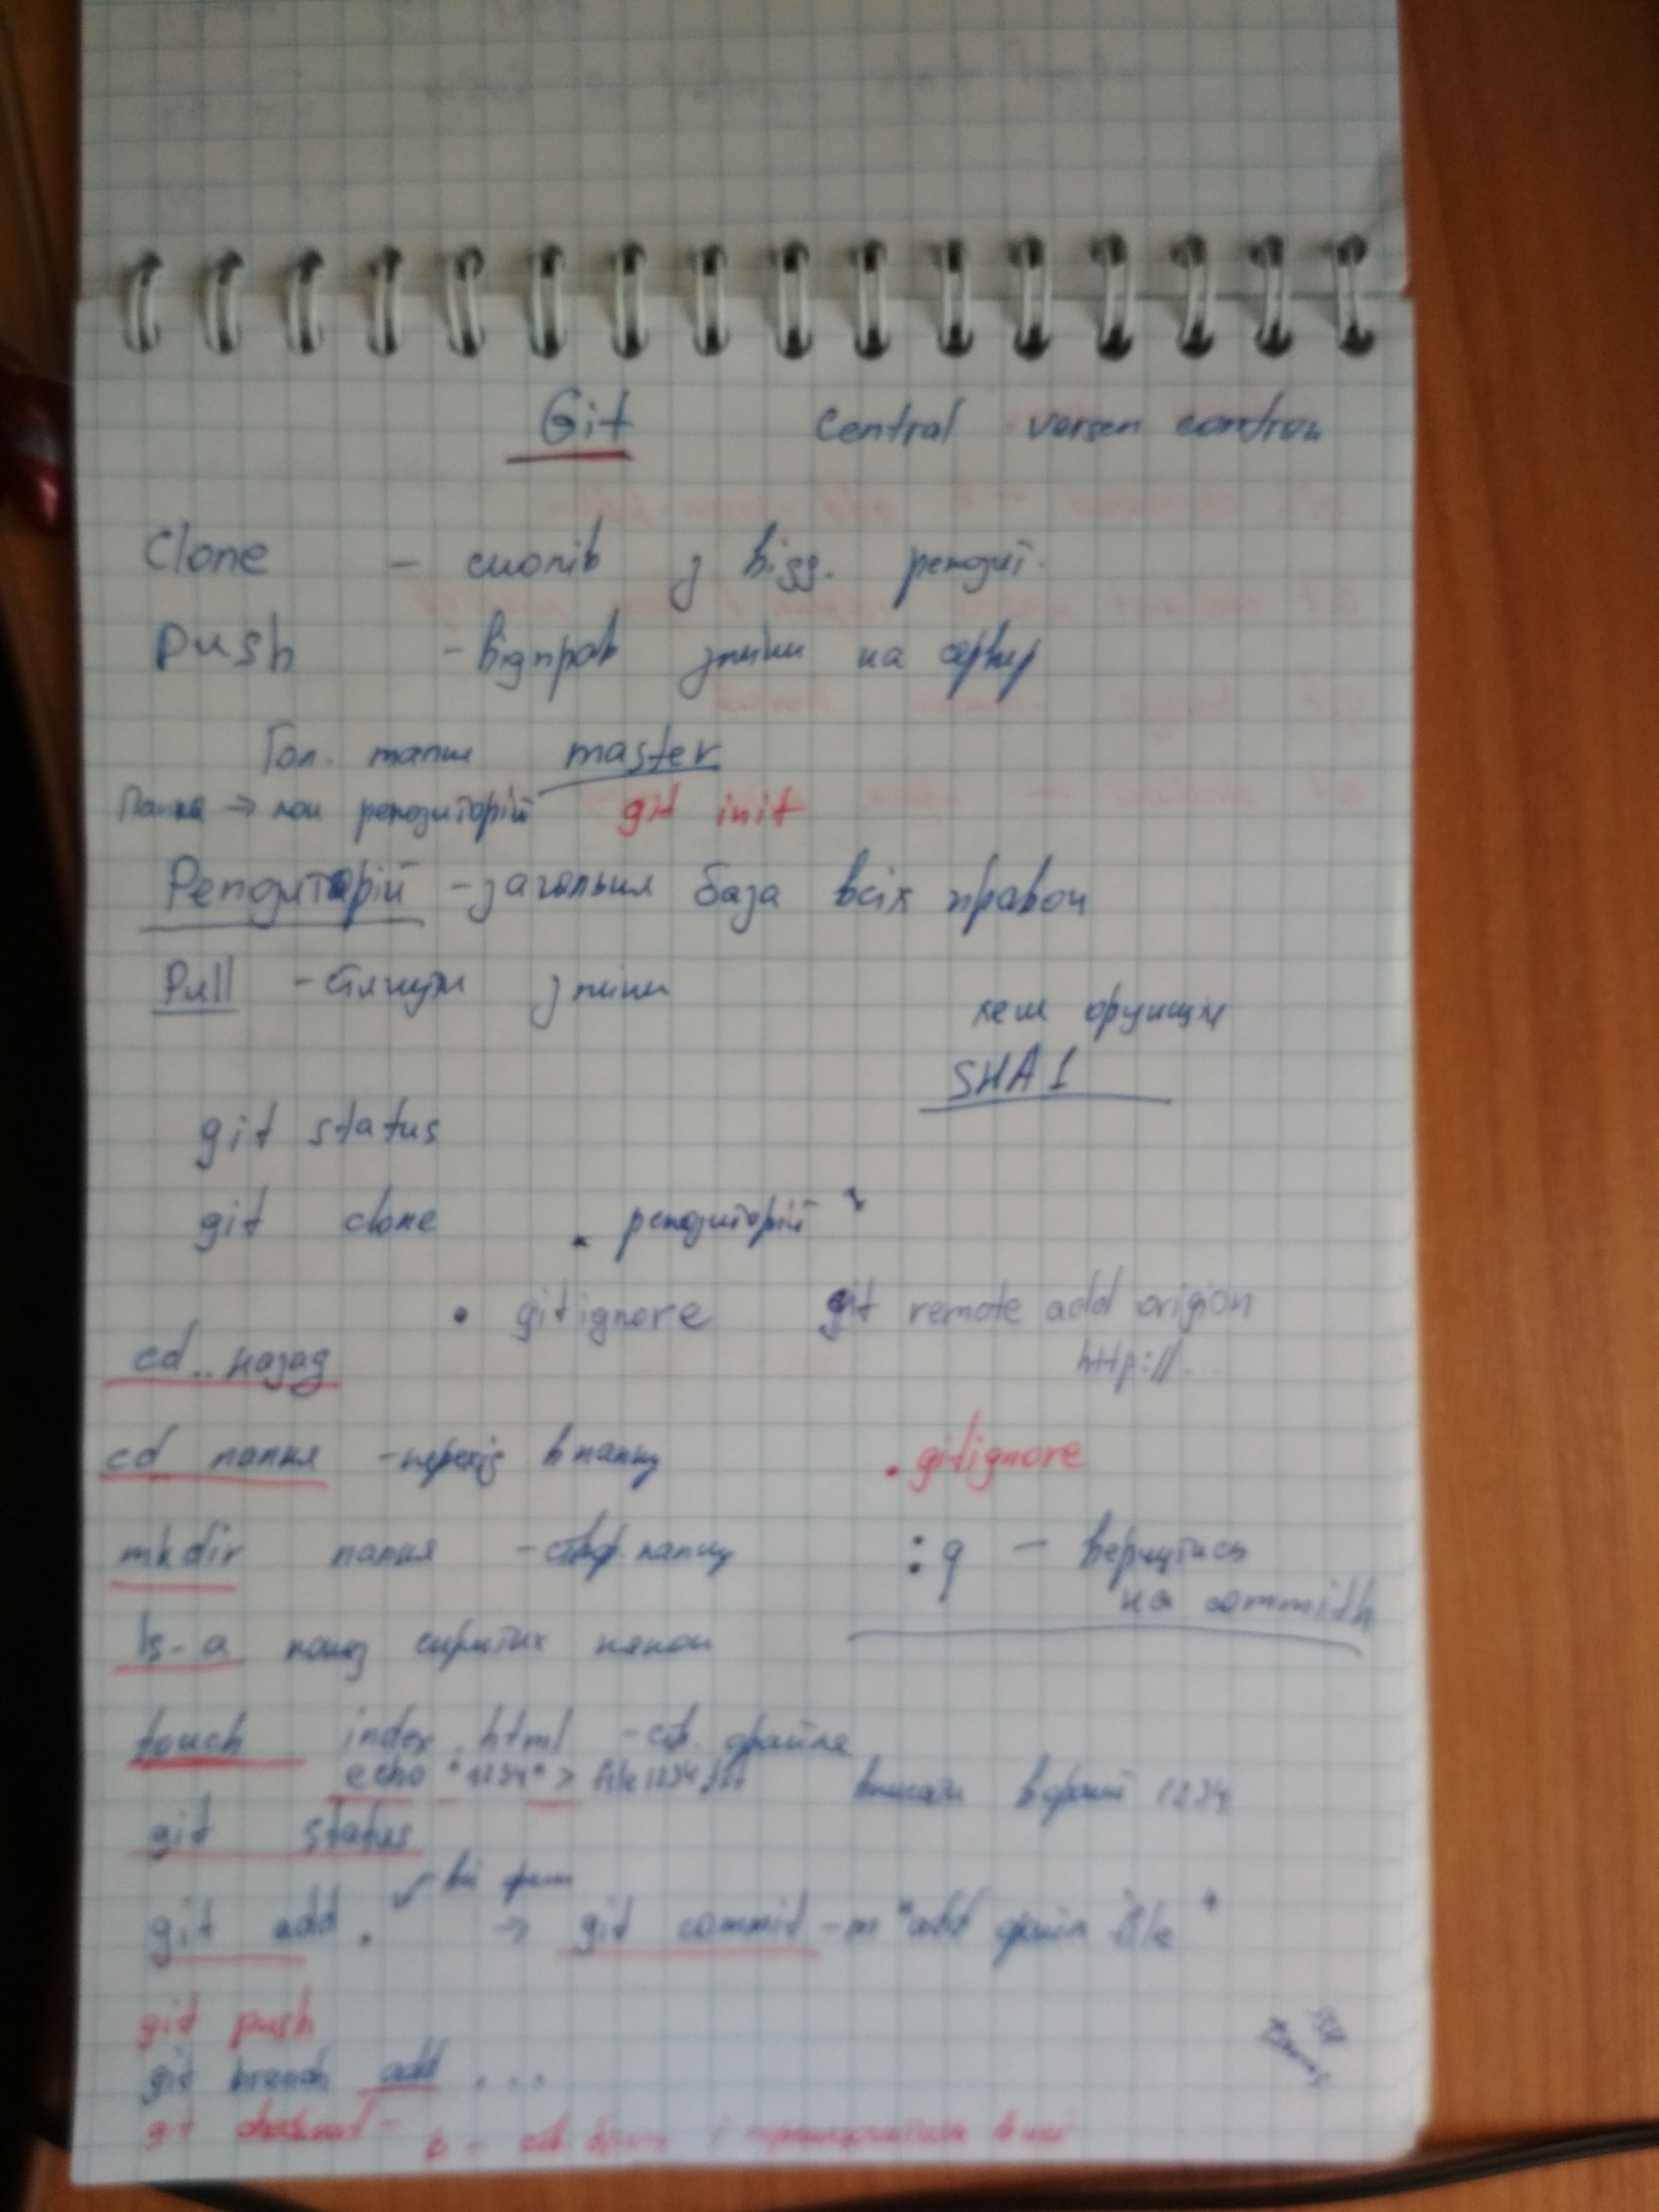 Git Central versen controu
Clone - скопів з відд. репозит.
Push - відправ зміни на сервер
Гол. master
Папка → лок репозиторій git init
Репозиторій - загальна база всіх правок
Pull - стягнути зміни
хеш функція
SHA1
git status
git clone . репозиторій
• gitignore git remote add origion
http://...
cd .. назад
cd папка - перехід в папку
.gitignore
mkdir папка - створ. папку
:q - вернутись
на commith
ls-a показ скритих папок
touch index.html - ств. файла
echo "1234" > file1234.txt вписати в файл 1234
git status
всі
git add . → git commit -m "add файл file"
git push
git branch add ...
git checkout - b - ств і в